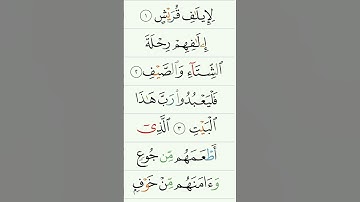 لِإِيلَٰفِ قُرَيْشٍ ١
إِۦلَٰفِهِمْ رِحْلَةَ
ٱلشِّتَآءِ وَٱلصَّيْفِ ٢
فَلْيَعْبُدُوا۟ رَبَّ هَٰذَا
ٱلْبَيْتِ ٣ ٱلَّذِىٓ
أَطْعَمَهُم مِّن جُوعٍ
وَءَامَنَهُم مِّنْ خَوْفٍۭ